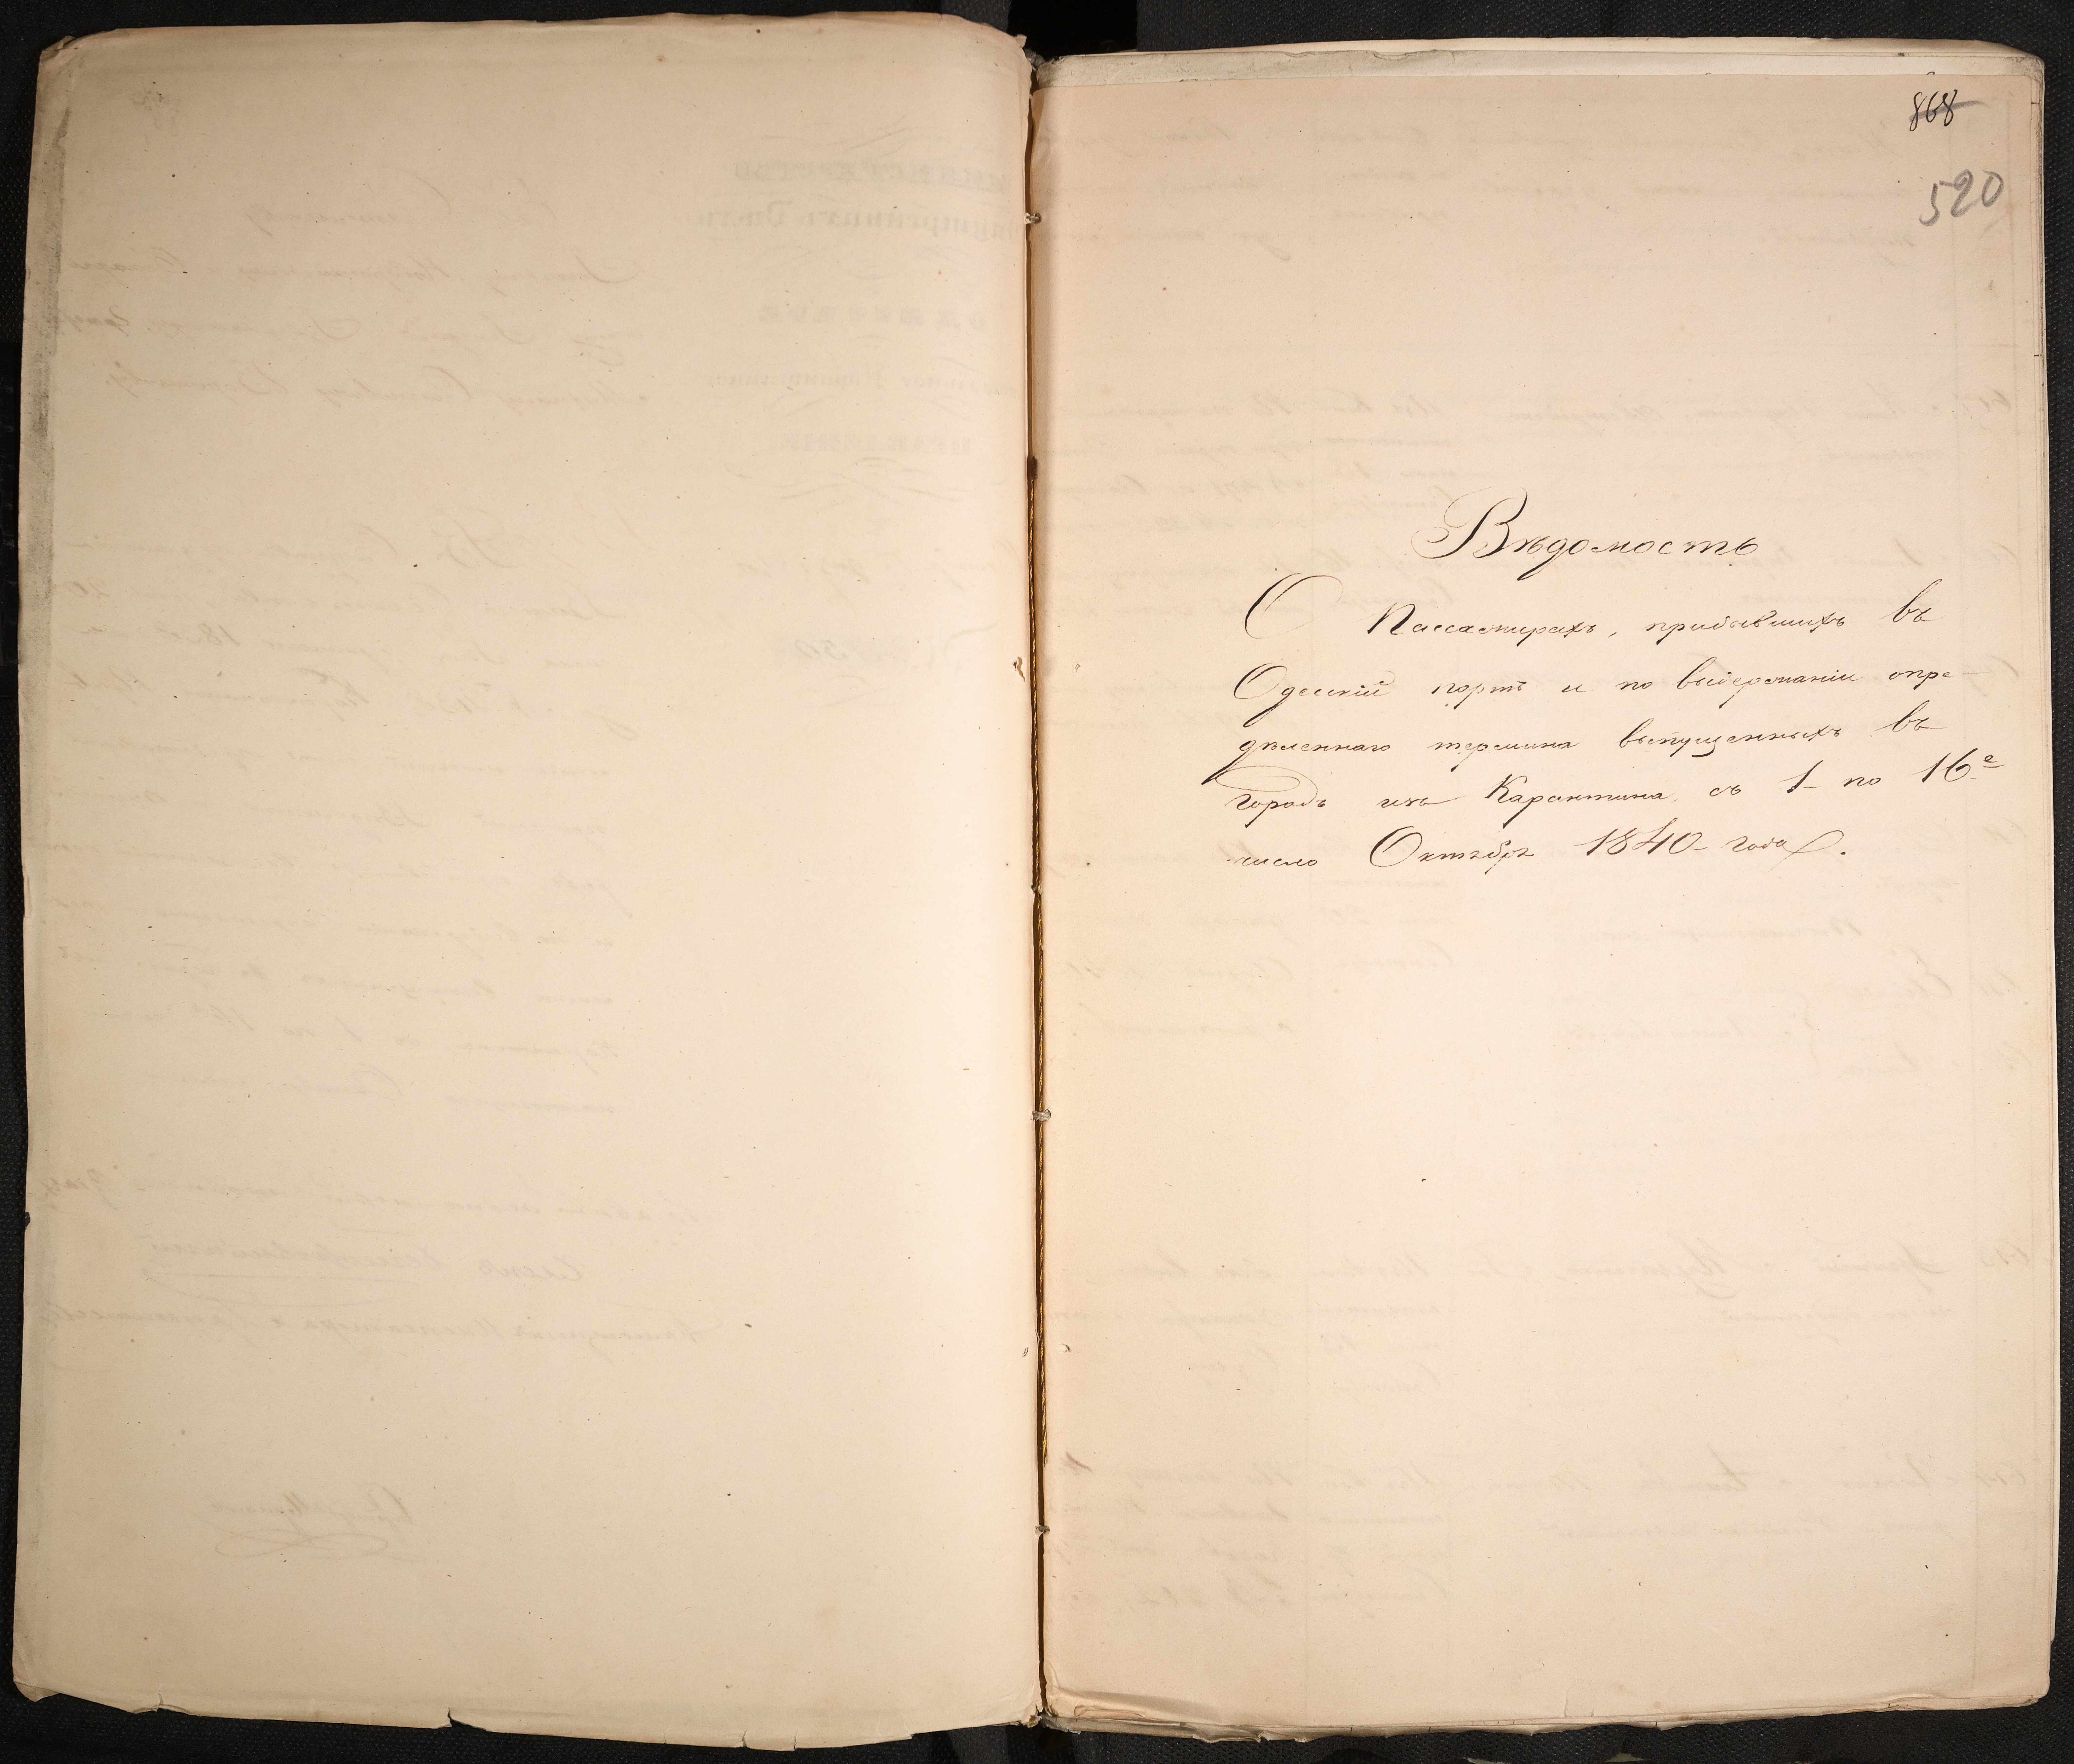 868
520
Вѣдомость
О Пассажирахъ, прибывшихъ въ
Одесскій портъ и по выдержаніи опре-
дѣленнаго термина выпущенныхъ въ
городъ изъ Карантина, съ 1 по 16е
число Октября 1840 года.